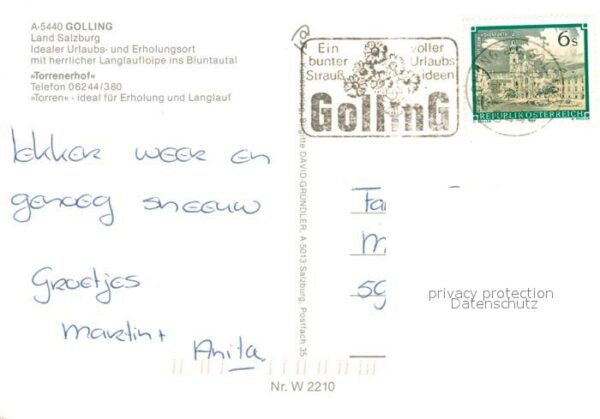 A-5440 GOLLING
Land Salzburg
Idealer Urlaubs- und Erholungsort
mit herrlicher Langlaufloipe ins Bluntautal
»Torrenerhof«
Telefon 06244/380
»Torren« - ideal für Erholung und Langlauf
Ein voller
bunter Urlaubs
Strauß ideen
GollinG
6s
REPUBLIK ÖSTERREICH
lekker weer en
genoeg sneeuw
Groetjes
Martin +
Anita
Brigitte DAVID-GRÜNDLER, A-5013 Salzburg, Postfach 35
Fa
M
59
privacy protection
Datenschutz
Nr. W 2210